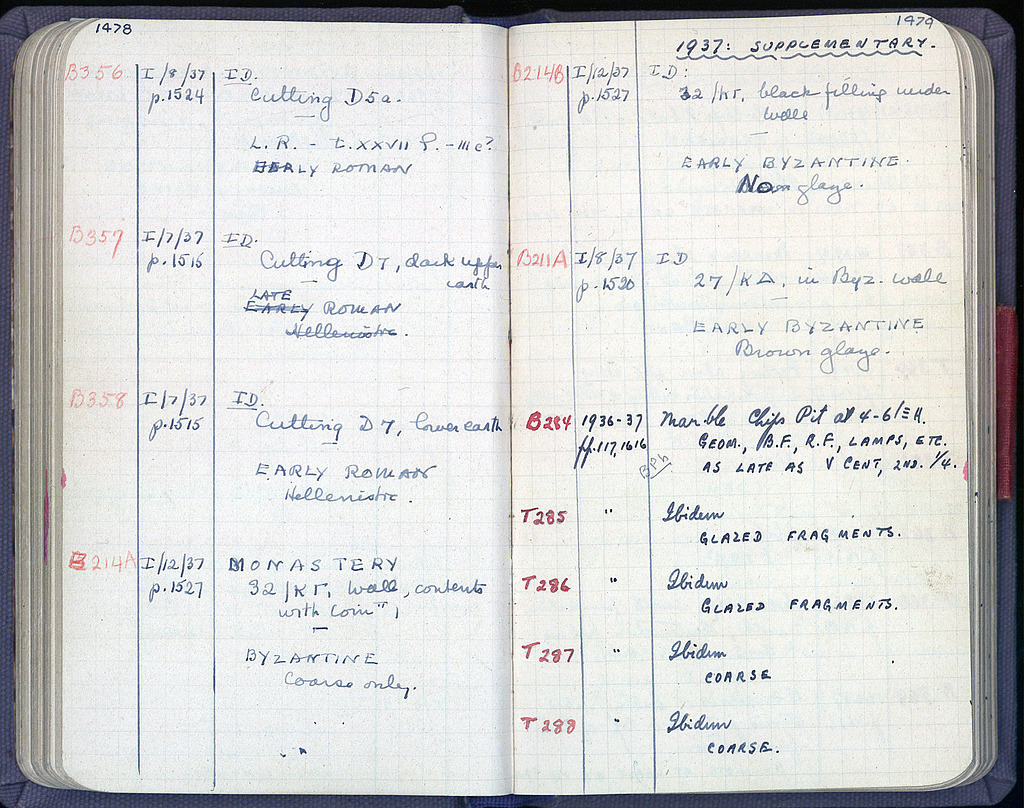 1478
B356 I/8/37 ID.
p.1524 Cutting D5a.
L. R. - L. XXVII P. - III c?
EARLY ROMAN
B357 I/7/37 ID.
p.1515 Cutting D7, dark upper
earth
LATE
EARLY ROMAN
Hellenistic.
B358 I/7/37 ID.
p.1515 Cutting D7, lower earth
EARLY ROMAN
Hellenistic.
B214A I/12/37 MONASTERY
p.1527 32/KΓ, wall, contents
with Coin
BYZANTINE
Coarse only.
1479
1937: SUPPLEMENTARY.
B214/B I/12/37 ID:
p.1527 32/KΓ, black filling under
wall
EARLY BYZANTINE.
No glaze.
B211A I/8/37 ID
p.1520 27/KΔ, in Byz. wall
EARLY BYZANTINE
Brown glaze.
B284 1936-37 Marble Chips Pit at 4-6/ΞH.
ff.117,1616 GEOM., B.F., R.F., LAMPS, ETC.
BPh AS LATE AS V CENT, 2ND. 1/4.
T285 " Ibidem
GLAZED FRAGMENTS.
T286 " Ibidem
GLAZED FRAGMENTS.
T287 " Ibidem
COARSE
T288 " Ibidem
COARSE.